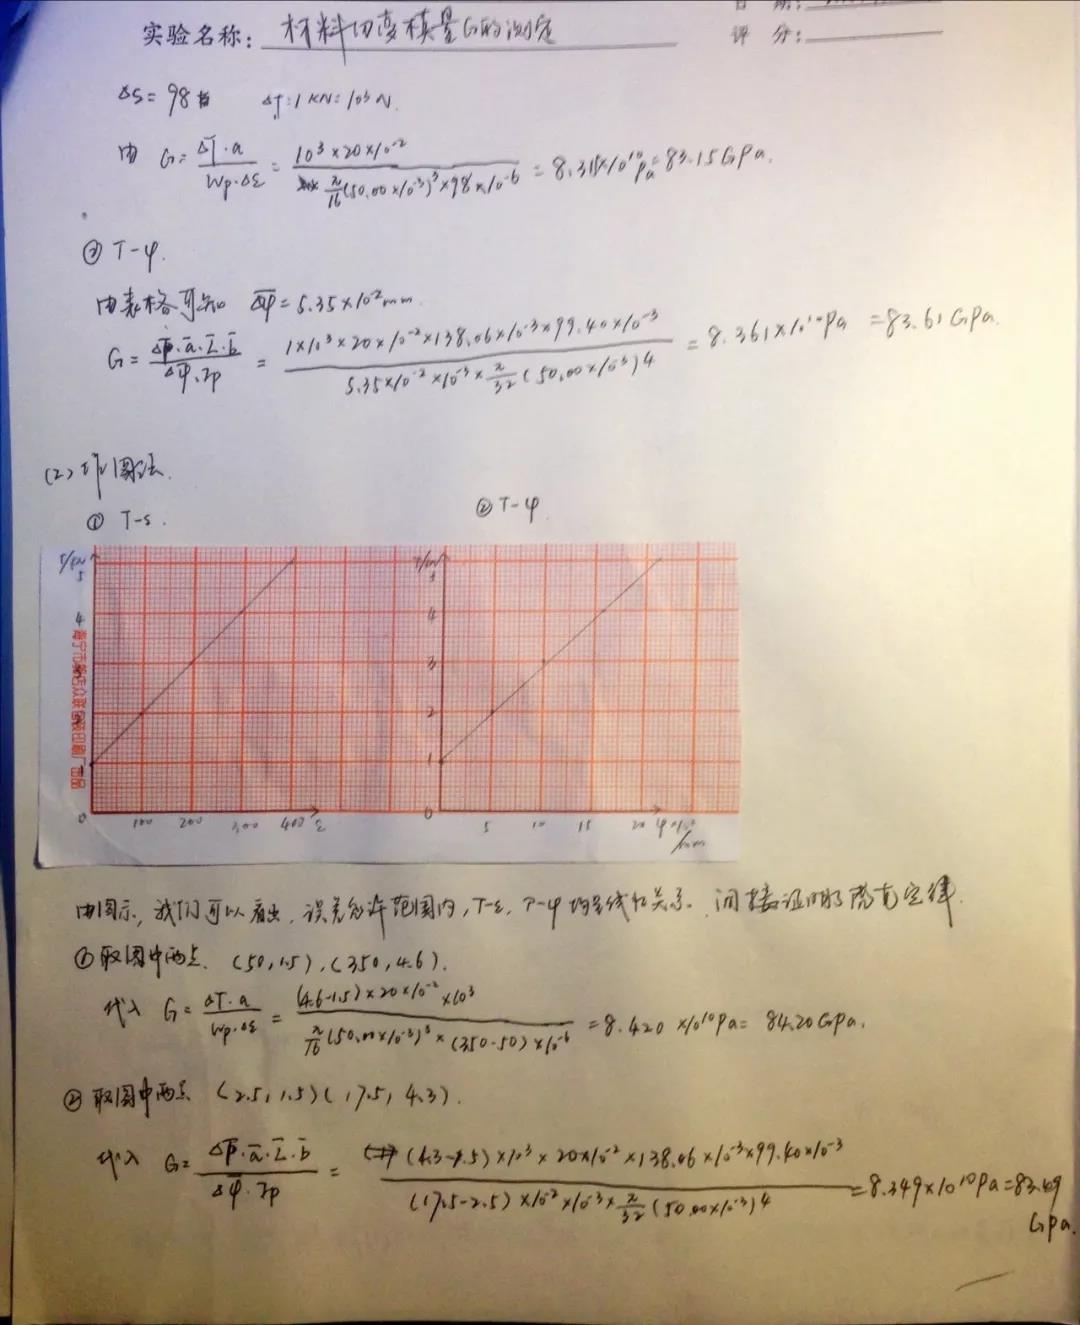 实验名称: 材料切变模量G的测定
评 分:
ΔS = 98 ΔT=1KN=10³N.
由 G = ΔT·a / Wp·Δε = 10³×20×10⁻² / π/16(50.00×10⁻³)³×98×10⁻⁶ = 8.315×10¹⁰Pa=83.15GPa.
② T-φ.
由表格可知 Δφ = 5.35×10⁻²mm.
G = ΔP·a·L·b / Δφ·Ip = 1×10³×20×10⁻²×138.06×10⁻³×99.40×10⁻³ / 5.35×10⁻²×10⁻³×π/32(50.00×10⁻³)4 = 8.361×10¹⁰Pa =83.61GPa.
(2)作图法.
① T-ε. ② T-φ.
5 4 0
100 200 300 400 ε
5 4 3 2 1 0
5 10 15 20 φ×10⁻²/mm
由图示,我们可以看出,误差允许范围内,T-ε,T-φ均呈线性关系.间接证明了胡克定律.
①取图中两点.(50,1.5),(350,4.6).
代入 G = ΔT·a / Wp·Δε = (4.6-1.5)×20×10⁻²×10³ / π/16(50.00×10⁻³)³×(350-50)×10⁻⁶ =8.420×10¹⁰Pa= 84.20GPa.
②取图中两点 (2.5,1.5)(17.5,4.3).
代入 G= ΔP·a·L·b / Δφ·Ip = (4.3-1.5)×10³×20×10⁻²×138.06×10⁻³×99.40×10⁻³ / (17.5-2.5)×10⁻²×10⁻³×π/32(50.00×10⁻³)4 =8.349×10¹⁰Pa=83.49
GPa.